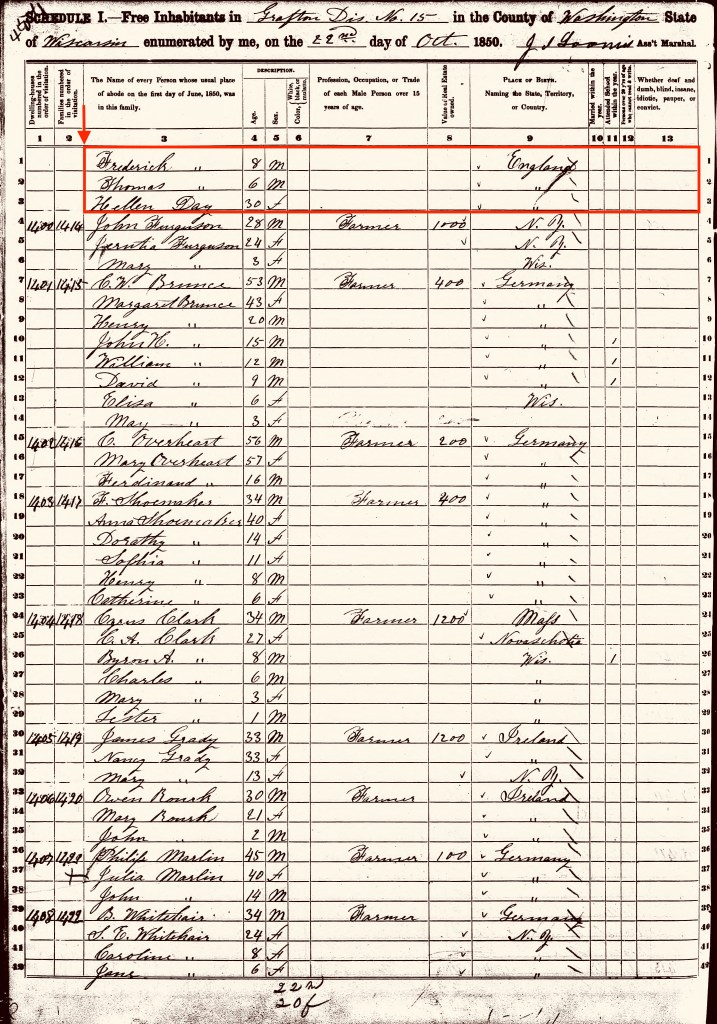 SCHEDULE I.—Free Inhabitants in Grafton Dis. No. 15 in the County of Washington State
of Wisconsin enumerated by me, on the 22nd day of Oct. 1850. J S Loomis Ass't Marshal.
Dwelling-houses numbered in the order of visitation. Families numbered in the order of visitation. The Name of every Person whose usual place of abode on the first day of June, 1850, was in this family. DESCRIPTION. Age. Sex. Color, White, black, or mulatto. Profession, Occupation, or Trade of each Male Person over 15 years of age. Value of Real Estate owned. PLACE OF BIRTH. Naming the State, Territory, or Country. Married within the year. Attended School within the year. Persons over 20 y'rs of age who cannot read & write. Whether deaf and dumb, blind, insane, idiotic, pauper, or convict.
1 2 3 4 5 6 7 8 9 10 11 12 13
1 Frederick " 8 M England 1
2 Thomas " 6 M " 2
3 Hellen Day 30 F " 3
4 1400 1414 John Furguson 28 M Farmer 1000 N. Y. 4
5 Furguson 24 F N. Y. 5
6 Mary " 3 F Wis. 6
7 1401 1415 C. W. Brunce 53 M Farmer 400 Germany 7
8 Margaret Brunce 43 F " 8
9 Henry " 20 M " 9
10 John H. " 15 M " 1 10
11 William " 12 M " 1 11
12 David " 9 M " 1 12
13 Elisa " 6 F Wis. 13
14 May " 3 F 14
15 1402 1416 C. Overheart 56 M Farmer 200 Germany 15
16 Mary Overheart 57 F " 16
17 Ferdinand " 16 M " 17
18 1403 1417 F. Shoemaker 34 M Farmer 400 " 18
19 Anna Shoemaker 40 F " 19
20 Dorathy " 14 F " 20
21 Sophia " 11 F " 21
22 Henry " 8 M " 22
23 Catherine " 6 F " 23
24 1404 1418 Cyrus Clark 34 M Farmer 1200 Mass 24
25 C. A. Clark 27 F Novaschotia 25
26 Byron A. " 8 M Wis. 1 26
27 Charles " 6 M " 27
28 Mary " 3 F " 28
29 Lester " 1 M " 29
30 1405 1419 James Grady 33 M Farmer 1200 Ireland 30
31 Nancy Grady 33 F " 31
32 Mary " 13 F N. Y. 32
33 1406 1420 Owen Rourk 30 M Farmer Ireland 33
34 Mary Rourk 21 F " 34
35 John " 2 M " 35
36 1407 1422 Philip Marlin 45 M Farmer 100 Germany 36
37 Julia Marlin 40 F " 37
38 John " 14 M " 38
39 1408 1422 B. Whitehair 34 M Farmer Germany 39
40 S. E. Whitehair 24 F N. Y. 40
41 Caroline " 8 F " 41
42 Jane " 6 F " 42
22 m
20 f